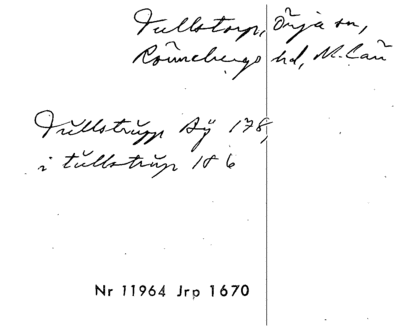 Tullstorp, Önja sn,
Rönnebergs hd, M.län
Tŭllstrŭpp Sÿ 178,
i tŭllstrŭp 186
Nr 11964 Jrp 1670